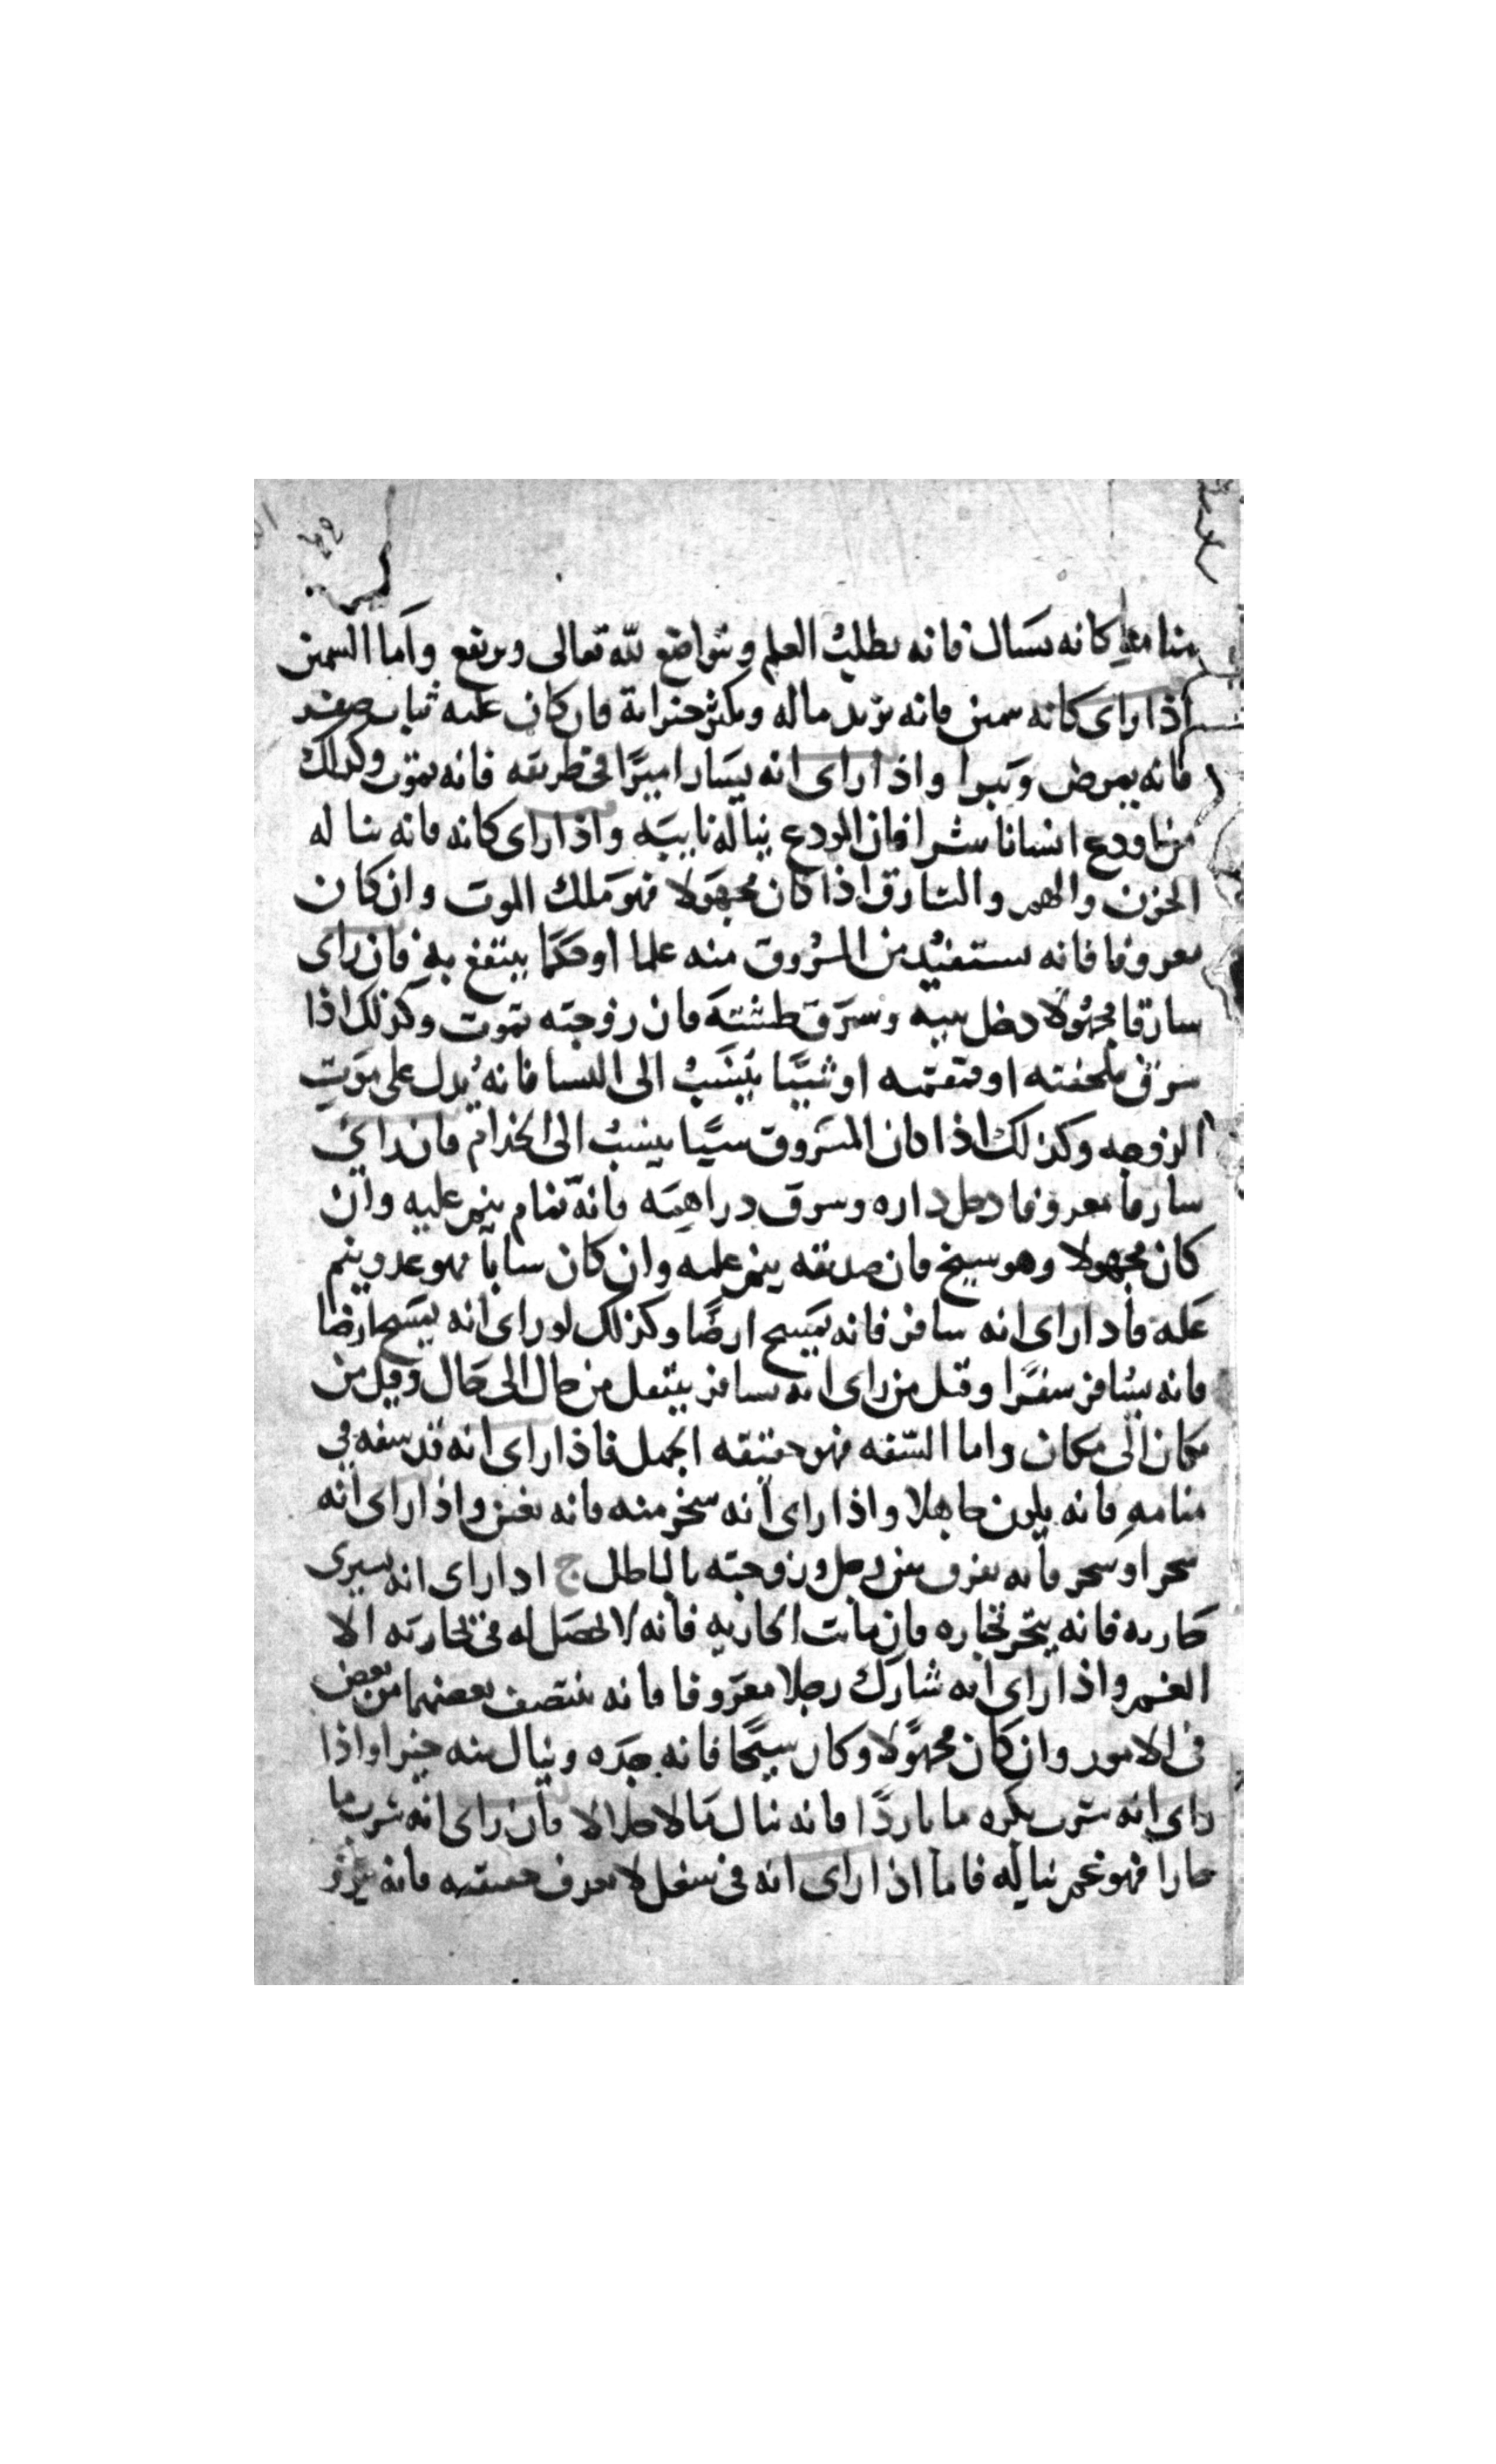 منامه كانه يسال فانه يطلب العلم ويتواضع لله تعالى ويرتفع واما السمن
اذا راى كانه سمين فانه يزيد ماله ويكثر خيراته فان كان عليه ثياب صفر
فانه يمرض ويبرا واذا راى انه يسار اميرا في طريقه فانه يموت وكذلك
من اودع انسانا سرا فان المودع يناله نايبه واذا راى كانه فانه يناله
الحزن والهم والسارق اذا كان مجهولا فهو ملك الموت وان كان
معروفا فانه يستفيد من المسروق منه علما او حكما ينتفع به فان راى
سارقا مجهولا دخل بيته وسرق طشته فان زوجته تموت وكذلك اذا
سرق ملحفته او قمقمه او شييا ينسب الى النسا فانه يدل على موت
الزوجه وكذلك اذا كان المسروق شيا ينسب الى الخدام فان راى
سارقا معروفا دخل داره وسرق دراهمه فانه نمام ينم عليه وان
كان مجهولا وهو شيخ فان صديقه ينم عليه وان كان شابا فهو عدو ينم
عليه فاذا راى انه سافر فانه يمسح ارضا وكذلك لو راى انه يمسح ارضا
فانه يسافر سفرا وقيل من راى انه يسافر ينتقل من حال الى حال وقيل من
مكان الى مكان واما السفه فهو حقيقه الجهل فاذا راى انه قد سفه في
منامه فانه يكون جاهلا واذا راى انه سخر منه فانه يغبن واذا راى انه
سحر او سحر فانه يفرق بين رجل وزوجته بالباطل ج اذا راى انه يسرى
جاريه فانه يتجر تجاره فان ماتت الجاريه فانه لا يحصل له في تجارته الا
الغم واذا راى انه شارك رجلا معروفا فانه ينتصف بعضهما من بعض
في الامور وان كان مجهولا وكان شيخا فانه جده وينال منه خيرا واذا
راى انه شرب بكره ما باردا فانه ينال مالا حلالا فان راى انه شرب ما
حارا فهو غم يناله فاما اذا راى انه في شغل لا يعرف حقيقته فانه